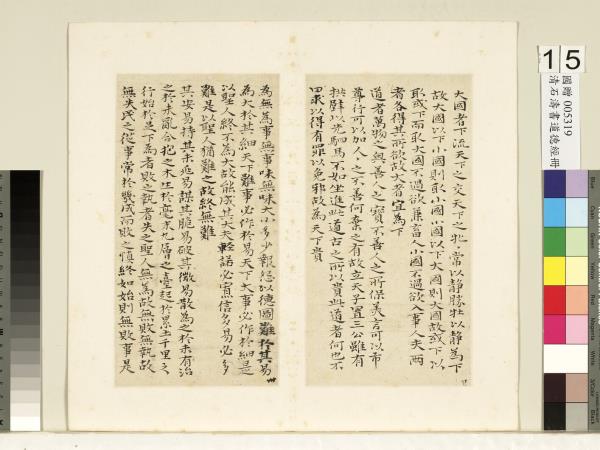 大國者下流天下之交天下之牝牝常以静勝牡以静為下
故大國以下小國則取小國小國以下大國則大國故或下以
取或下而取大國不過欲兼畜人小國不過欲入事人夫兩
者各得其所欲故大者宜為下
道者萬物之奥善人之寶不善人之所保美言可以市
尊行可以加人人之不善何棄之有故立天子置三公雖有
拱璧以先駟馬不如坐進此道古之所以貴此道者何也不
曰求以得有罪以免邪故為天下貴
為無為事無事味無味大小多少報怨以德圖難於其易
為大於其細天下難事必作於易天下大事必作於細是
以聖人終不為大故能成其大夫輕諾必寡信多易必多
難是以聖人猶難之故終無難
其安易持其未兆易謀其脆易破其微易散為之於未有治
之於未亂合抱之木生於毫末九層之臺起於累土千里之
行始於足下為者敗之執者失之聖人無為故無敗無執故
無失民之從事常於幾成而敗之慎終如始則無敗事是
15
國贈 005319
清石濤書道德經冊
Blue
Cyan
Green
Yellow
Red
Magenta
White
3/Color
Black